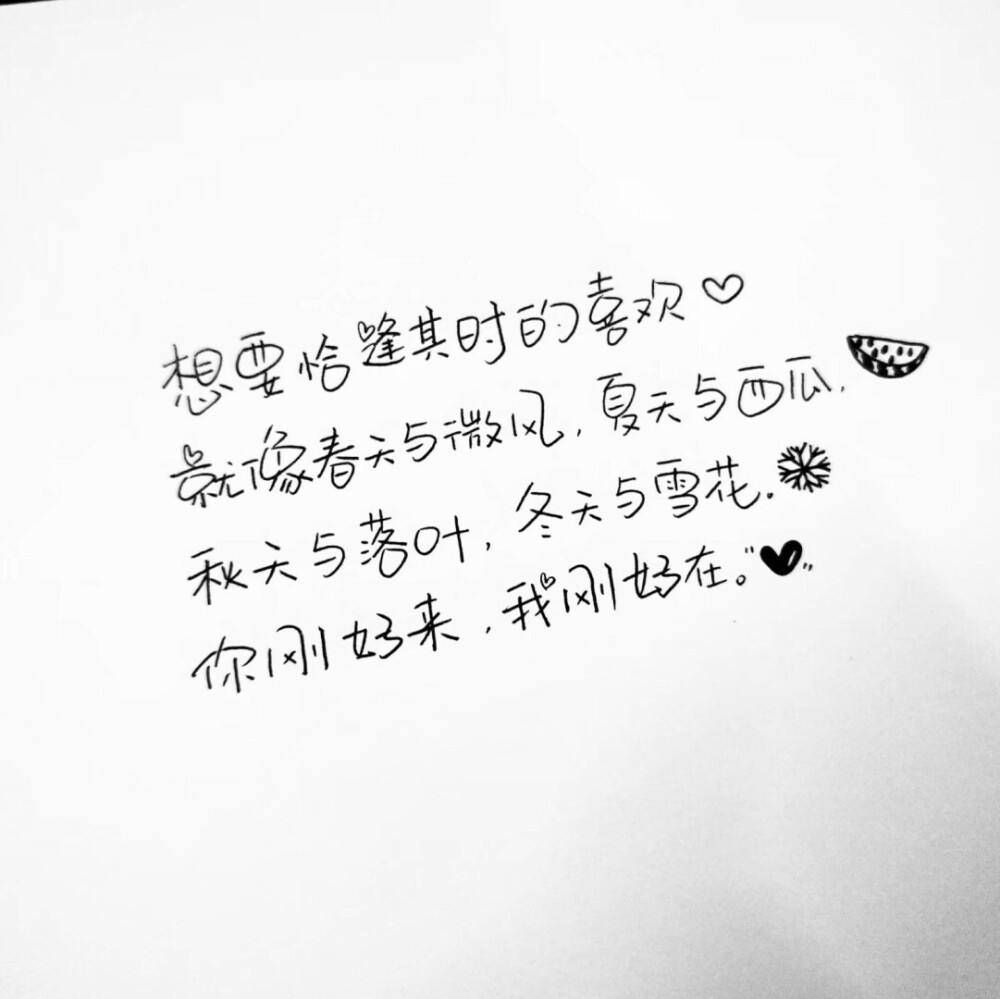 想要恰逢其时的喜欢♡
就像春天与微风,夏天与西瓜.
秋天与落叶,冬天与雪花.
你刚好来,我刚好在。"♥"